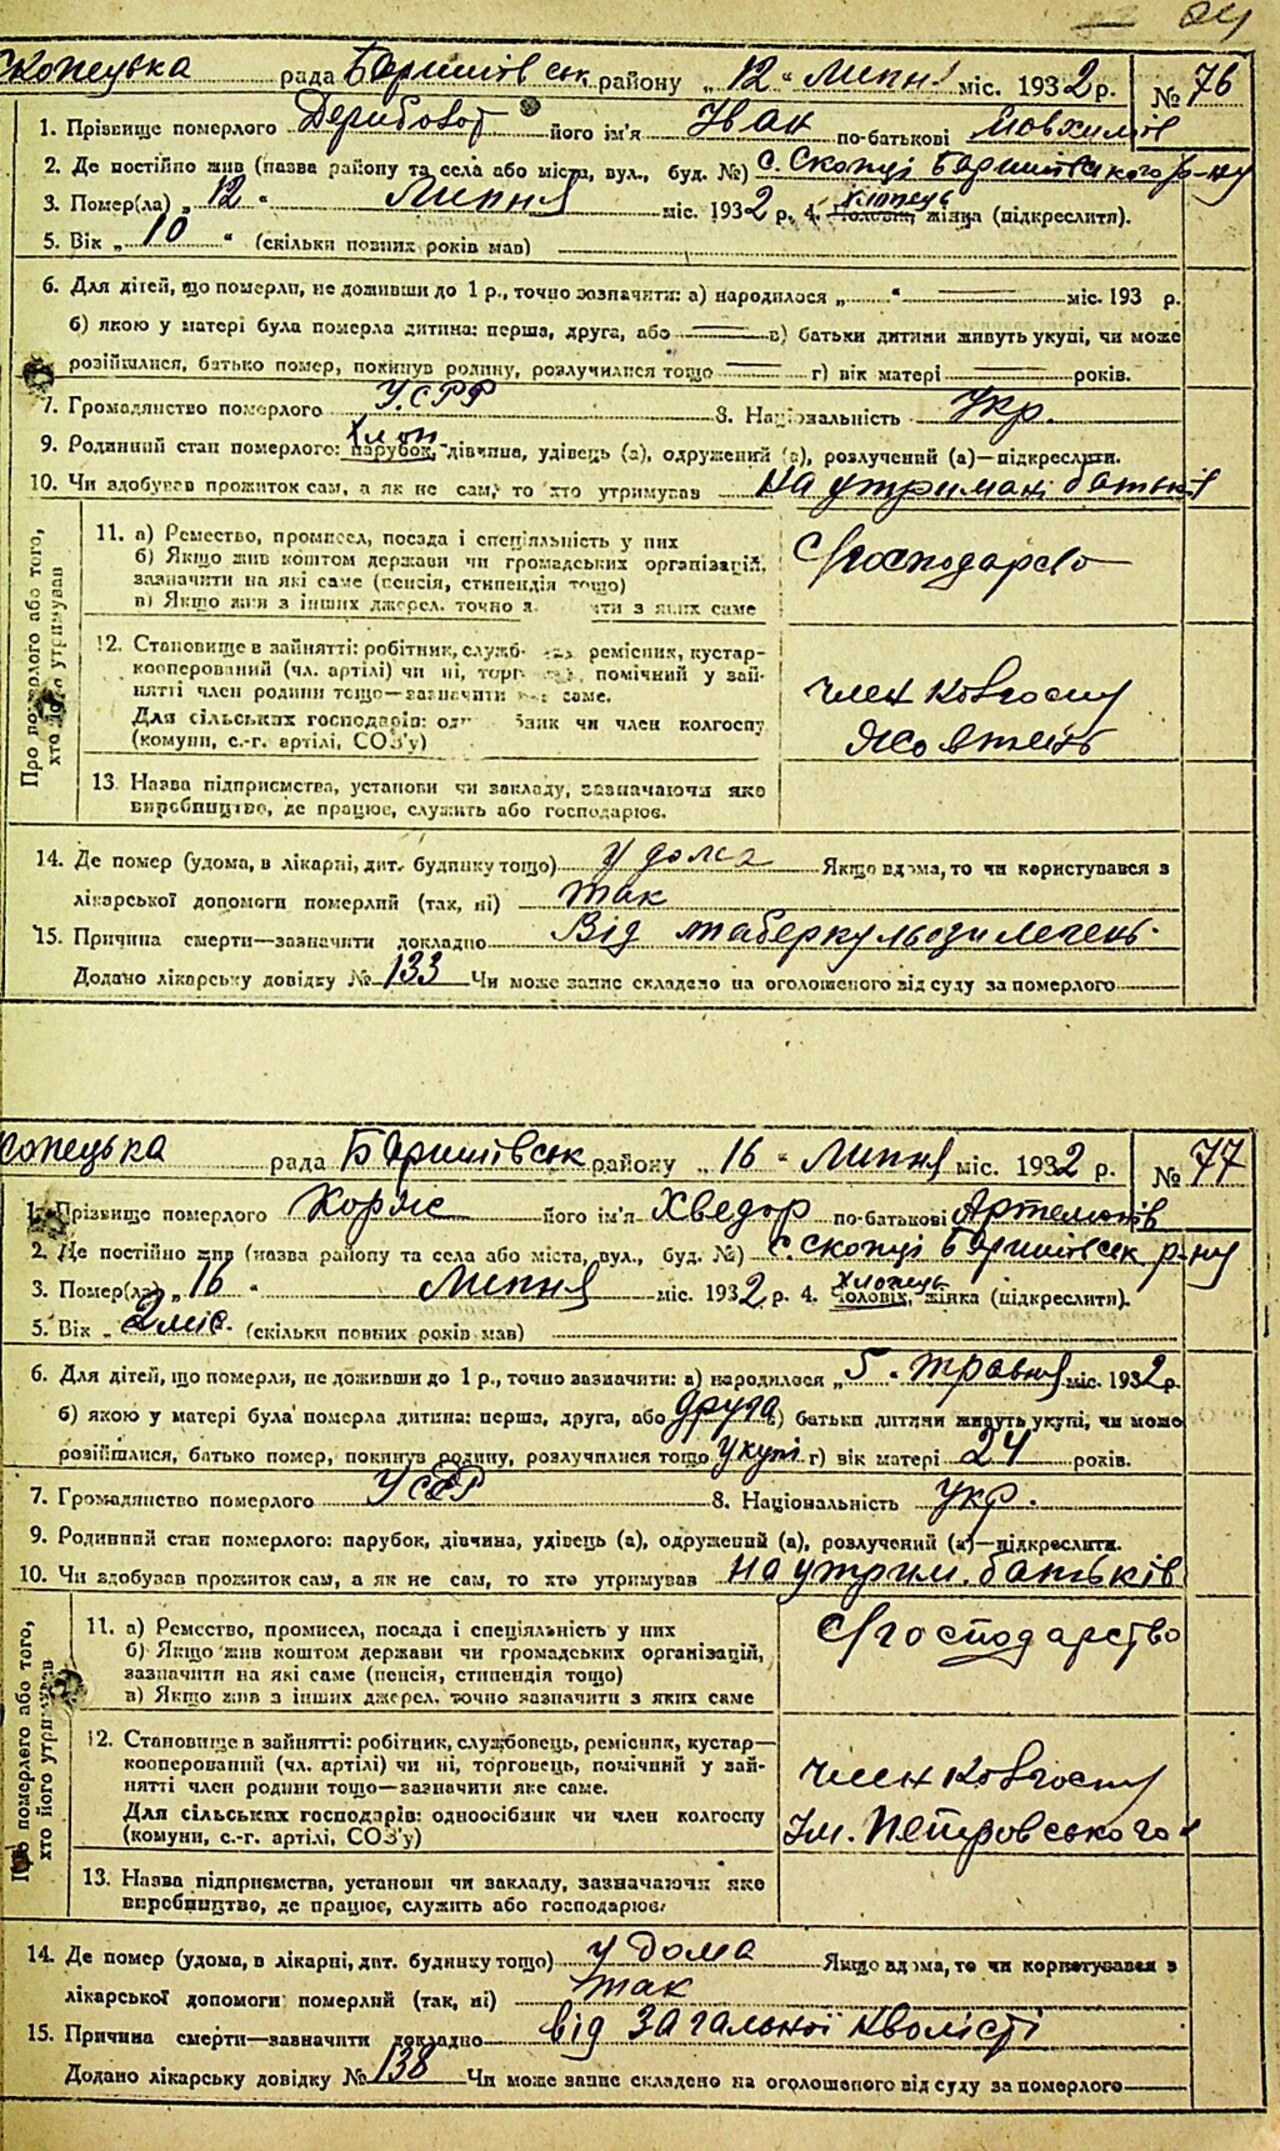 Скопецька рада Баришівськ району „12“ Липня міс. 1932 р. № 76
1. Прізвище померлого його ім'я Іван по-батькові
2. Де постійно жив (назва району та села або міста, вул., буд. №) с. Скопці Баришівського р-ну
3. Помер(ла) „12“ Липня міс. 1932 р. 4. хлопець Чоловік, жінка (підкреслити).
5. Вік „10“ (скільки повних років мав)
6. Для дітей, що померли, не доживши до 1 р., точно зазначити: а) народилося „ “ міс. 193 р.
б) якою у матері була померла дитина: перша, друга, або в) батьки дитини живуть укупі, чи може
розійшлися, батько помер, покинув родину, розлучилися тощо г) вік матері років.
7. Громадянство померлого УСРР 8. Національність Укр.
9. Родинний стан померлого: хлоп парубок, дівчина, удівець (а), одружений (а), розлучений (а)—підкреслити.
10. Чи здобував прожиток сам, а як не сам, то хто утримував На утримані батьків
Про померлого або того, хто його утримував
11. а) Ремество, промисел, посада і спеціяльність у них
б) Якщо жив коштом держави чи громадських організацій,
зазначити на які саме (пенсія, стипендія тощо)
в) Якщо жив з інших джерел, точно з яких саме
С/господарство
12. Становище в зайнятті: робітник, служб ремісник, кустар-
кооперований (чл. артілі) чи ні, торг помічний у зай-
нятті член родини тощо—зазначити саме.
Для сільських господарів: од чи член колгоспу
(комуни, с.-г. артілі, СОЗ'у)
член ковгоспу
Жовтень
13. Назва підприємства, установи чи закладу, зазначаючи яке
виробництво, де працює, служить або господарює.
14. Де помер (удома, в лікарні, дит. будинку тощо) у дома Якщо вдома, то чи користувався з
лікарської допомоги померлий (так, ні) так
15. Причина смерти—зазначити докладно Від туберкульози легень
Додано лікарську довідку № 133 Чи може запис складено на оголошеного від суду за померлого
Скопецька рада Баришівськ району „16“ Липня міс. 1932 р. № 77
1. Прізвище померлого Корж його ім'я Хведор по-батькові Артемонів
2. Де постійно жив (назва району та села або міста, вул., буд. №) с. Скопці Баришівськ р-ну
3. Помер(ла) „16“ Липня міс. 1932 р. 4. хлопець Чоловік, жінка (підкреслити).
5. Вік „2 міс. (скільки повних років мав)
6. Для дітей, що померли, не доживши до 1 р., точно зазначити: а) народилося „5“ травня міс. 1932 р.
б) якою у матері була померла дитина: перша, друга, або друга в) батьки дитини живуть укупі, чи може
розійшлися, батько помер, покинув родину, розлучилися тощо укупі г) вік матері 24 років.
7. Громадянство померлого УСРР 8. Національність укр.
9. Родинний стан померлого: парубок, дівчина, удівець (а), одружений (а), розлучений (а)—підкреслити.
10. Чи здобував прожиток сам, а як не сам, то хто утримував На утрим. батьків
Про померлого або того, хто його утримував
11. а) Ремество, промисел, посада і спеціяльність у них
б) Якщо жив коштом держави чи громадських організацій,
зазначити на які саме (пенсія, стипендія тощо)
в) Якщо жив з інших джерел, точно зазначити з яких саме
С/господарство
12. Становище в зайнятті: робітник, службовець, ремісник, кустар—
кооперований (чл. артілі) чи ні, торговець, помічний у зай-
нятті член родини тощо—зазначити яке саме.
Для сільських господарів: одноосібник чи член колгоспу
(комуни, с.-г. артілі, СОЗ'у)
член ковгоспу
Ім. Петровського
13. Назва підприємства, установи чи закладу, зазначаючи яке
виробництво, де працює, служить або господарює.
14. Де помер (удома, в лікарні, дит. будинку тощо) у дома Якщо вдома, то чи користувався з
лікарської допомоги померлий (так, ні) так
15. Причина смерти—зазначити докладно від загальної кволісті
Додано лікарську довідку № 138 Чи може запис складено на оголошеного від суду за померлого